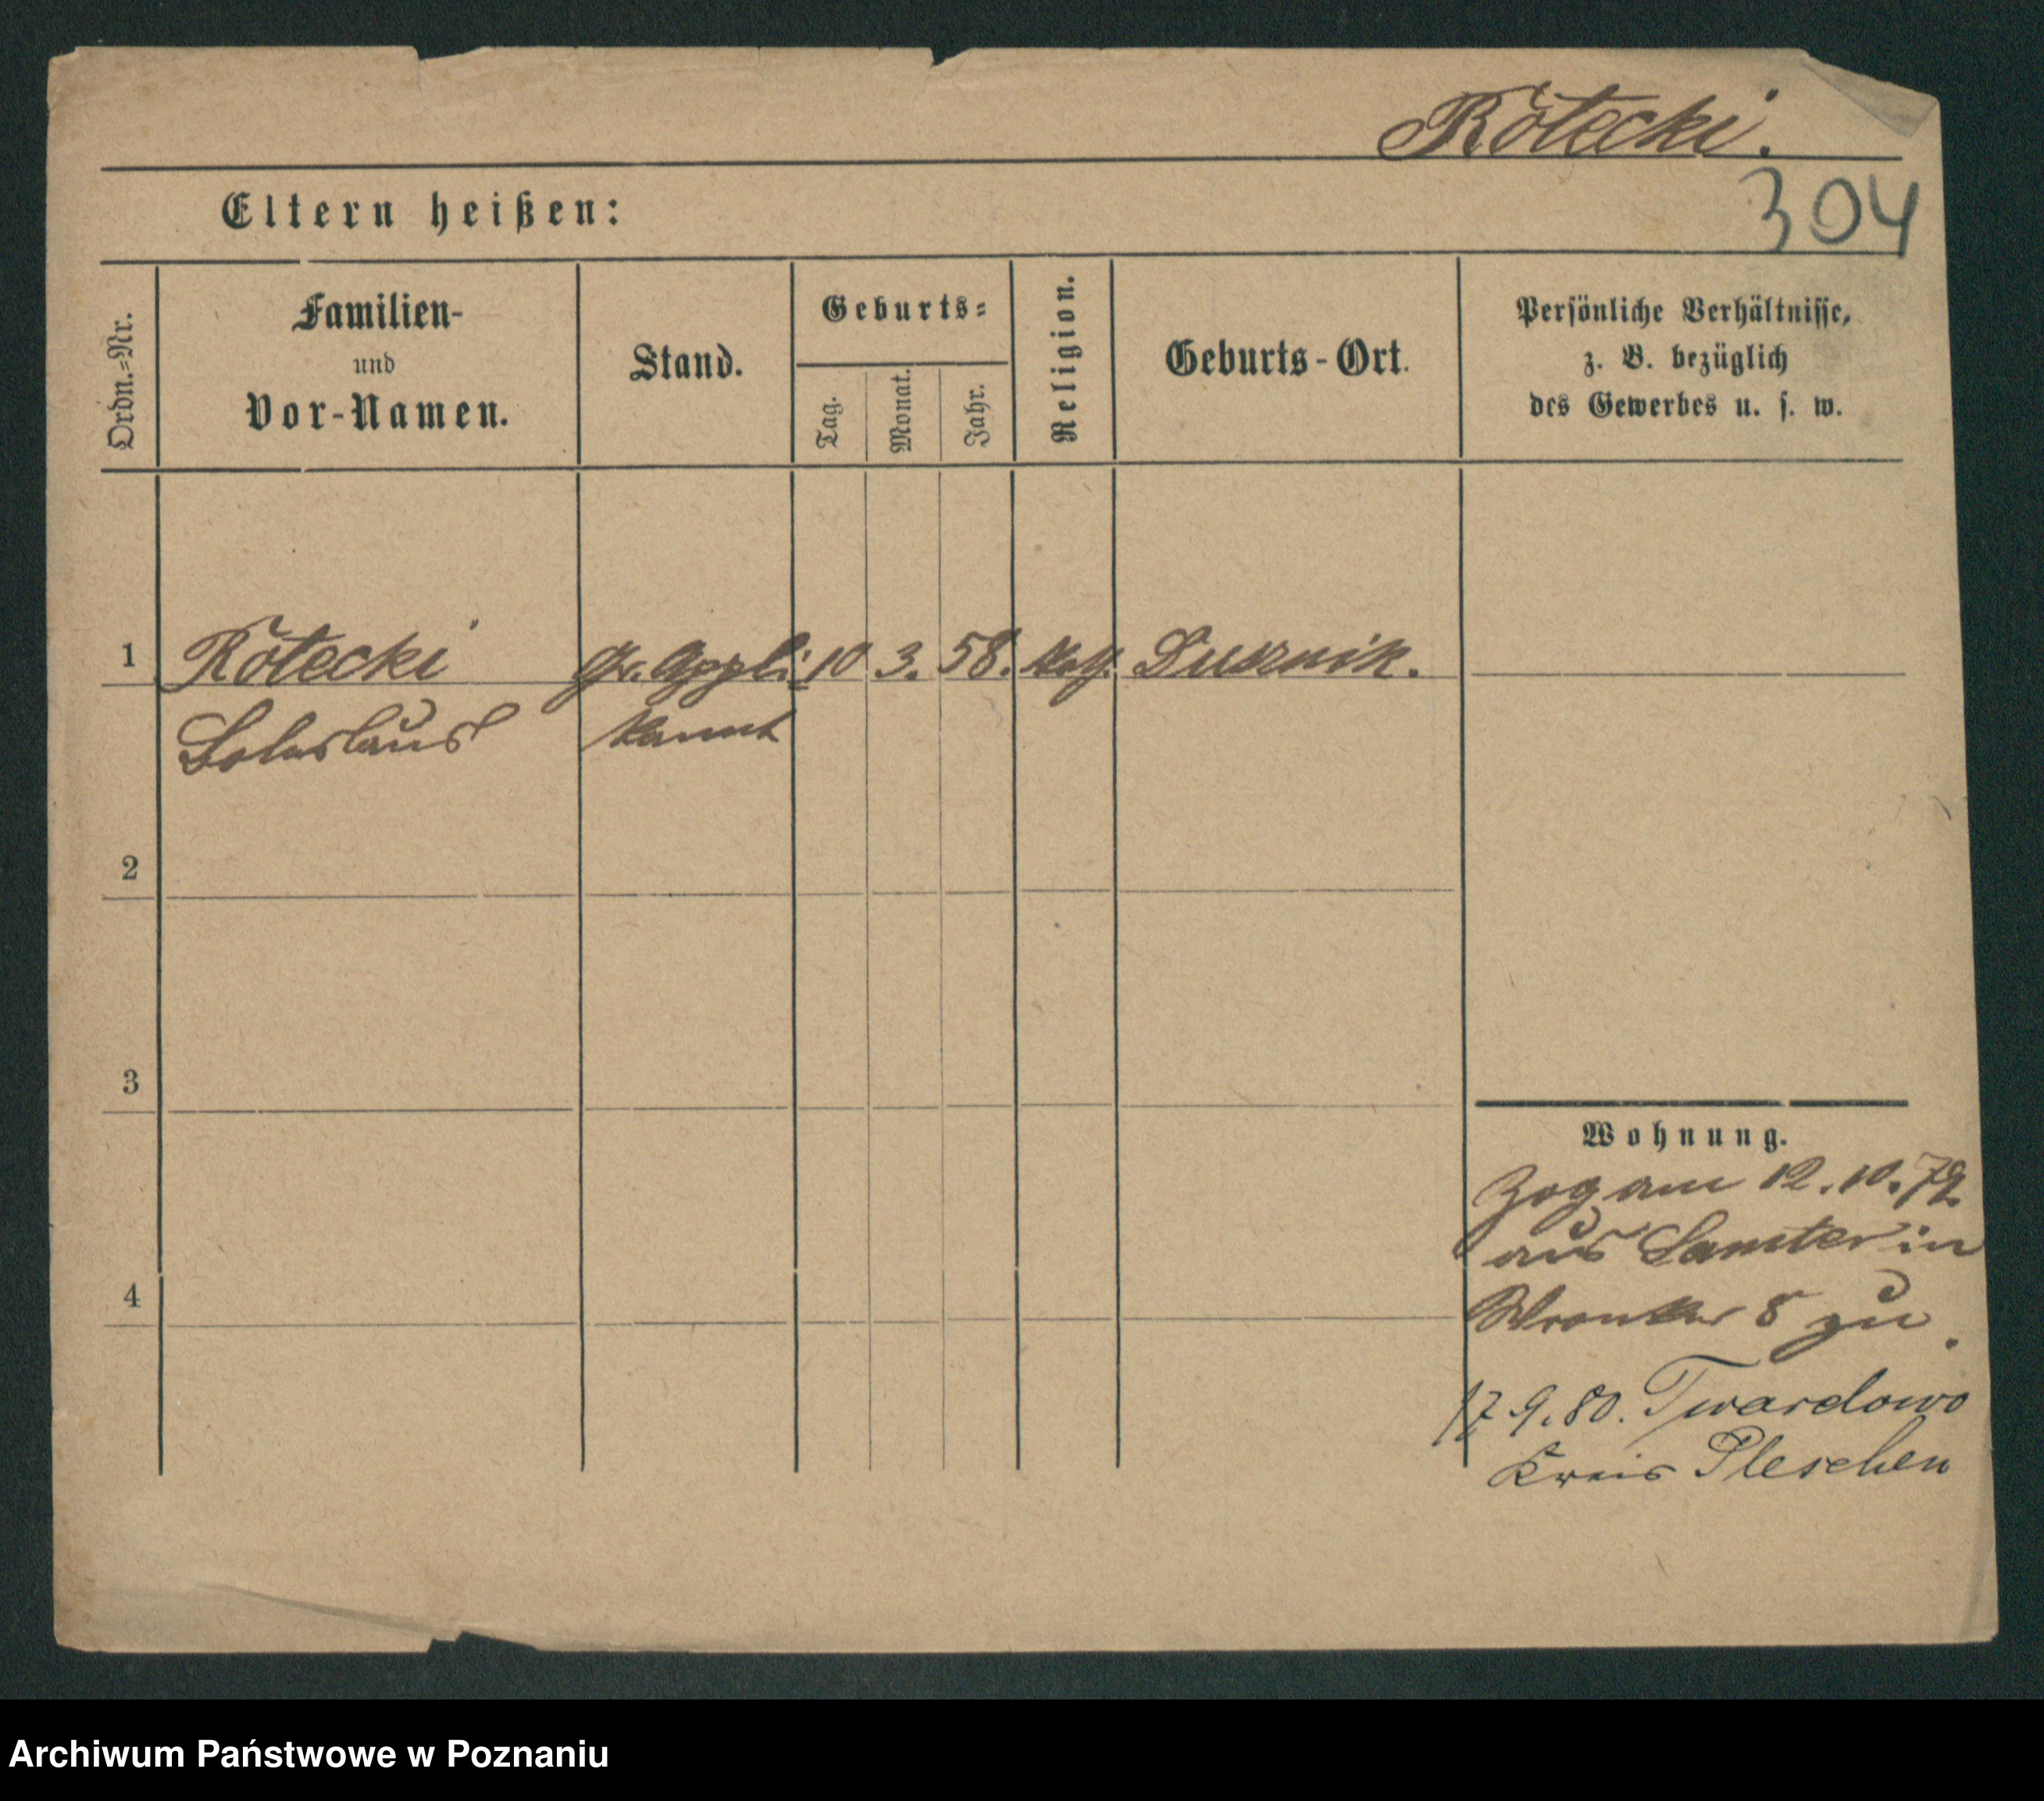 Rötecki.
304
Eltern heißen:
Ordn.=Nr.
Familien-
und
Vor-Namen.
Stand.
Geburts=
Tag.
Monat.
Jahr.
Religion.
Geburts-Ort.
Persönliche Verhältnisse,
z. B. bezüglich
des Gewerbes u. s. w.
1 Rötecki Appli= 10. 3. 58. kath. Dusznik.
Boleslaus kannt
2
3
4
Wohnung.
Zog am 12. 10. 79
aus Samter in
Wronker 8 zu.
17.9.80. Twardowo
Kreis Pleschen
Archiwum Państwowe w Poznaniu